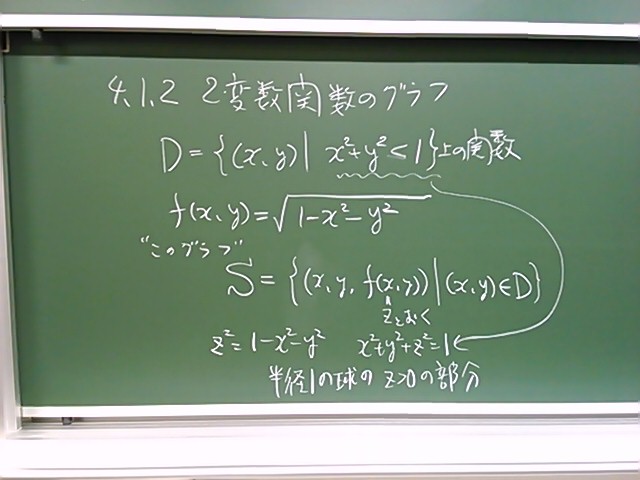 4.1.2 2変数関数のグラフ
D = {(x, y) | x²+y² < 1}上の関数
f(x, y) = √1-x²-y²
"このグラフ"
S = {(x, y, f(x,y)) | (x,y) ∈ D}
zとおく
z² = 1-x²-y² x²+y²+z² = 1
半径1の球の z>0の部分